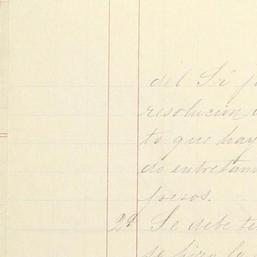 del Sí
resolucion
to que hay
do entretan
pesos.
2ª Se debe te
se hizo la